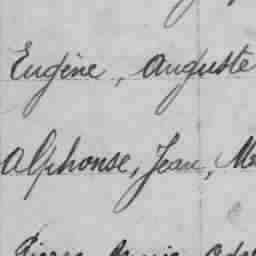 Eugène, Auguste
Alphonse, Jean, M
Pierre